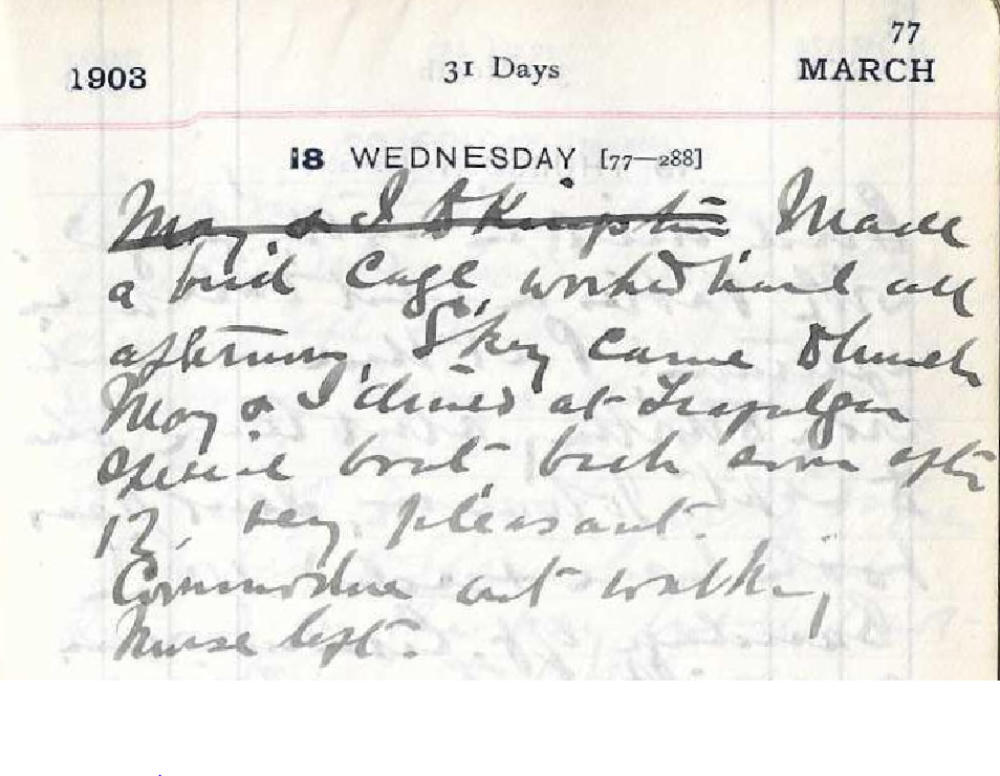 77
1903 31 Days MARCH
18 WEDNESDAY [77—288]
May & I to Kingston Made
a bird cage, worked hard all
afternoon, Skey came to lunch
May & I dined at Trafalgar
special boat back soon after
12, very pleasant.
Commodore out walking,
Nurse left.